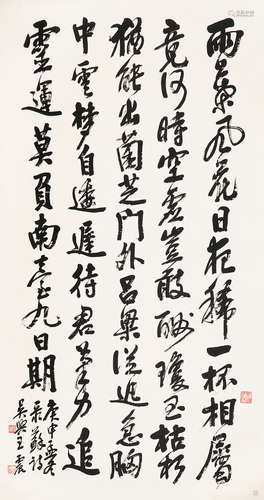 雨葉風花日夜稀一杯相屬
竟何時空虛豈敢酬瓊玉枯朽
猶能出菌芝門外呂梁從迅急胸
中雲夢自逶遲待君筆力追
靈運莫負南臺九日期
庚申
蘇詩
吳興王震